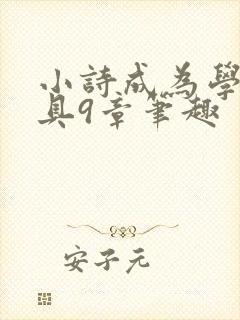 小詩成為學
具9章筆趣
安子元